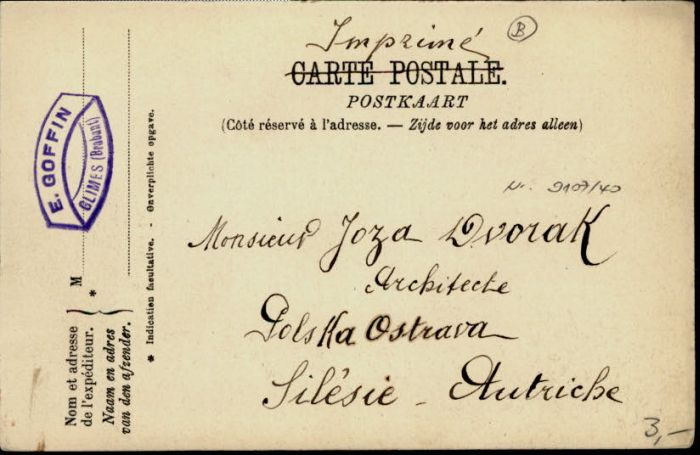 Imprimé
B
CARTE POSTALE.
POSTKAART
(Côté réservé à l'adresse. — Zijde voor het adres alleen)
Nr. 9107/40
Monsieur Joza Dvorak
Architecte
Polska Ostrava
Silésie - Autriche
3,-
E. GOFFIN
GLIMES (Brabant)
M
*
Nom et adresse
de l'expéditeur.
Naam en adres
van den afzender.
* Indication facultative. - Onverplichte opgave.